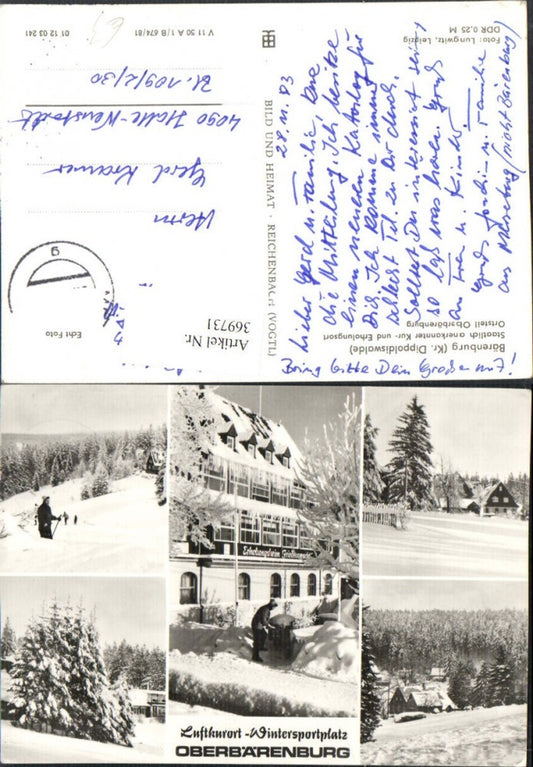 Bärenburg (Kr. Dippoldiswalde)
Staatlich anerkannter Kur- und Erholungsort
Ortsteil Oberbärenburg
28.11.83
Lieber Gerd u. Familie, Dank
die Mitteilung. Ich besitze
einen neuen Katalog für
Dich. Ich komme
Tel. zu Dir durch.
Solltest Du interessiert sein,
so laß was hören. Gruß
an Frau u. Kinder
Gruß Joachim u. Familie
aus Merseburg (nicht Bärenburg)
Bring bitte Dein Großen mit!
Foto: Lungwitz, Leipzig
DDR 0,25 M
BILD UND HEIMAT · REICHENBACH (VOGTL)
V 11 50 A 1 / B 674/81 01 12 03 241
Echt Foto
Artikel Nr.
369731
Herrn
Gerd Kramer
4090 Halle-Neustadt
Bl. 109/2/30
g
Erholungsheim
Luftkurort - Wintersportplatz
OBERBÄRENBURG